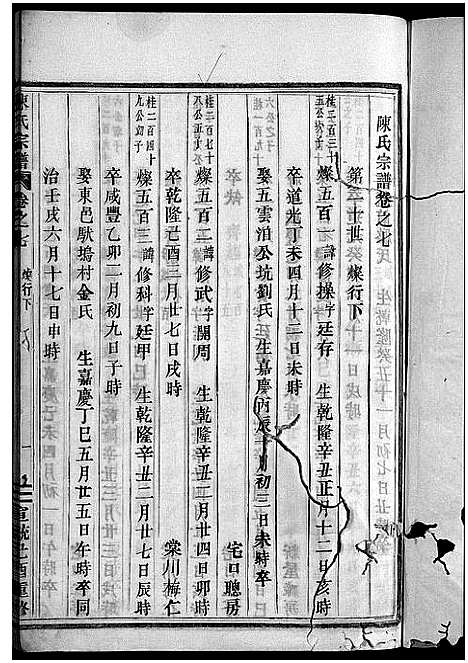 陳氏宗譜卷之七
第三十世 燦行下
桂二百三十
五公幼子 燦五百一 諱修操字廷存 生乾隆辛丑正月十二日亥時
卒道光丁未四月十二日未時 宅口聰房
娶五雲泊公坑劉氏 生嘉慶丙辰 月初三日未時卒
桂二百四十
八公幼子 燦五百二 諱修武字開周 生乾隆辛丑二月廿四日卯時
卒乾隆己酉三月廿七日戌時 棠川梅仁
桂二百四十
九公幼子 燦五百三 諱修科字廷甲 生乾隆辛丑二月廿七日辰時
卒咸豐乙卯二月初九日子時
娶東邑馱塢村金氏 生嘉慶丁巳五月廿五日午時卒同
治壬戌六月十七日申時
陳氏宗譜 卷之七 燦行下 一